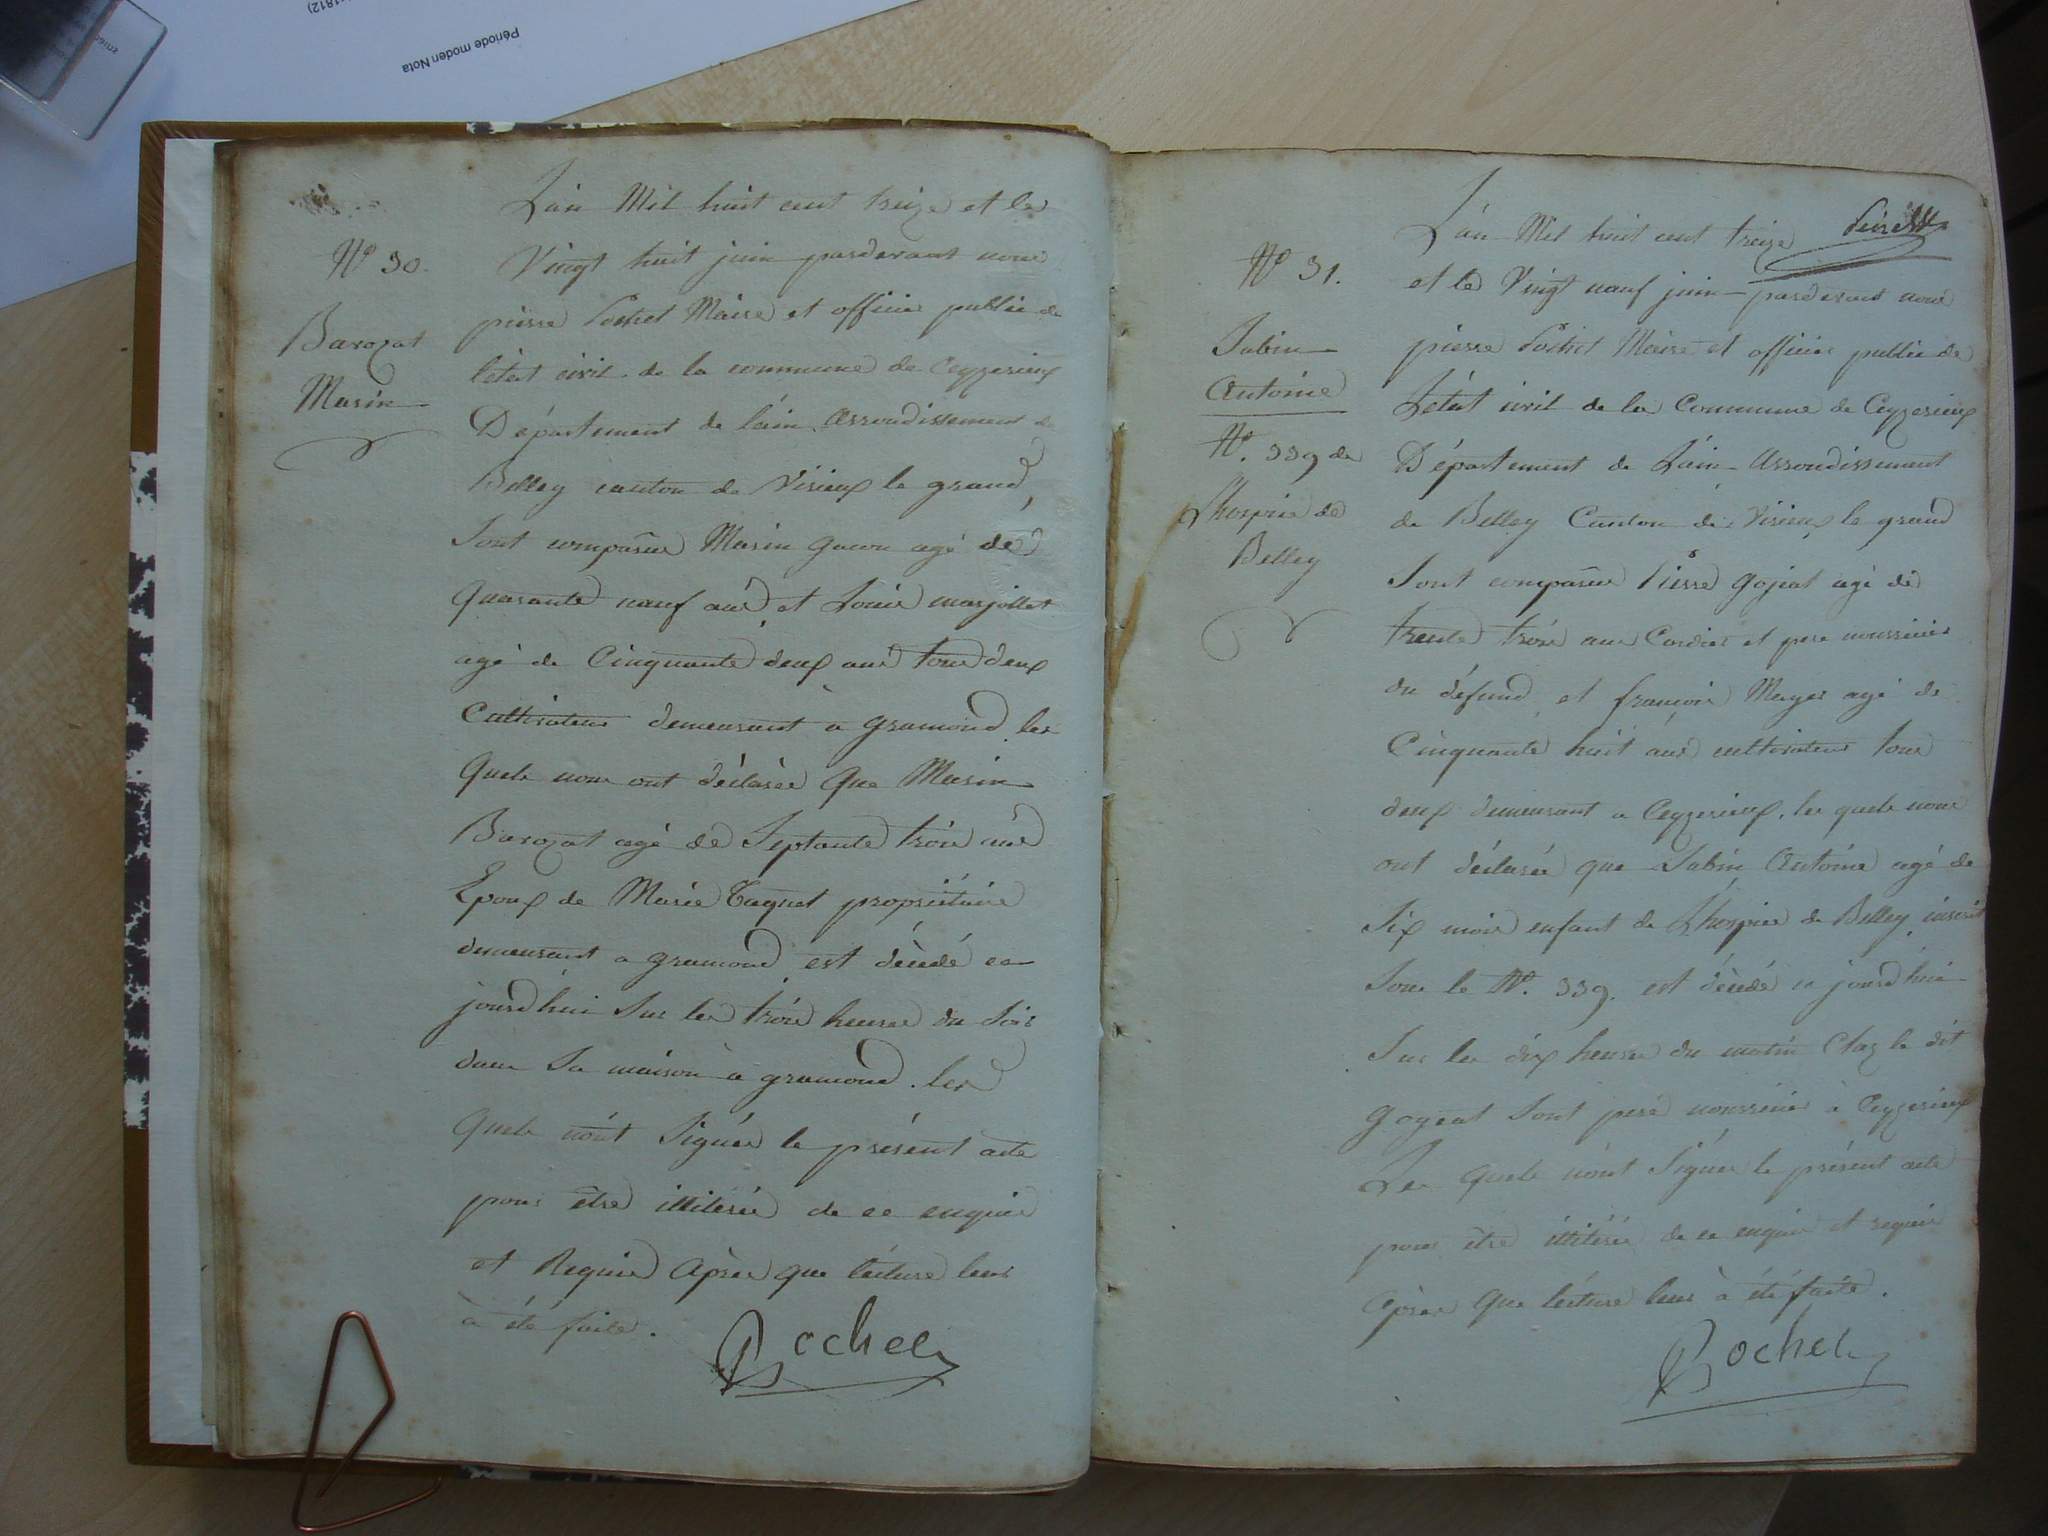 Période moden Nota
1812)
L'an Mil huit cent treize et le
N° 30.
Vingt huit juin pardevant nous
pierre Pochet Maire et officier public de
Barozat
Marin
létat civil de la commune de Ceyzerieux
Département de láin arrondissement de
Belley canton de Virieux le grand,
Sont comparus Marin gacon agé de
quarante neuf ans, et Louis marjollet
agé de Cinquante deux ans tous deux
Cultivateurs demeurant à gramond, les
quels nous ont déclarés que Marin
Barozat agé de Septante trois ans
Epoux de Marie Taquet propriétaire
demeurant a gramond est décédé ce
jourdhui Sur les trois heures du Soir
dans Sa maison à gramond. les
quels n'ont Signés le présent acte
pour être illitérés de ce enquis
et Requis Après que lécture leur
à été faite.
Pochet
L'an Mil huit cent treize
N° 31.
et le Vingt neuf juin pardevant nous
Sabin
Antoine
pierre Pochet Maire et officier public de
L'état civil de la Commune de Ceyzerieux
N°. 339 de
Lhospice de
Belley
Département de Láin Arrondissement
de Belley Canton de Virieux le grand
Sont comparus Pierre gojeat agé de
trente trois ans Cordier et pere nourricier
du défund et françois Mayer agé de
Cinquante huit ans cultivateur tous
deux demeurant a Ceyzerieux, les quels nous
ont déclarés que Sabin Antoine agé de
Six mois enfant de Lhospice de Belley inscrit
Sous le N°. 339. est décédé ce jourdhui
Sur les dix heures du matin Chez le dit
gogeat Sont peré nourricier à Ceyzerieux
Les quels n'ont Signés le présent acte
pour être illitérés de ce enquis et requis
Aprés que lécture leur à été faite.
Pochet